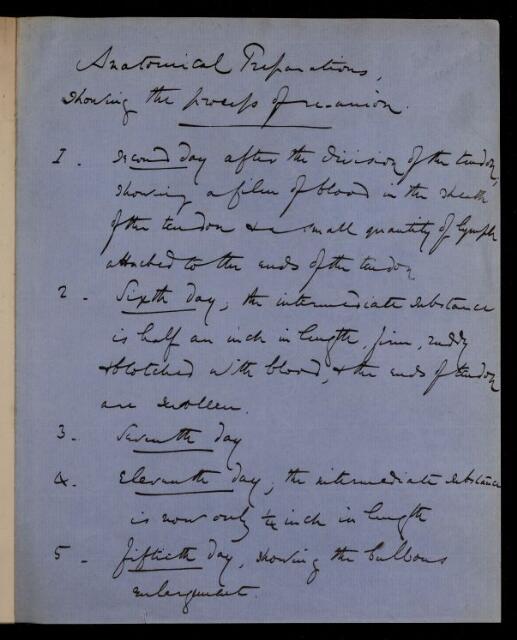 Anatomical Preparations,
showing the process of re-union.
1. Second day after the division of the tendon,
showing a film of blood in the sheath
of the tendon & a small quantity of lymph
attached to the ends of the tendon
2 - Sixth day, the intermediate substance
is half an inch in length, firm, ruddy
& blotched with blood, & the ends of tendon
are swollen.
3 - Seventh day
4. Eleventh day, the intermediate substance
is now only ¼ inch in length
5 - fiftieth day, showing the bulbous
enlargement.